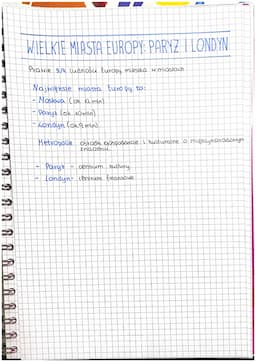 WIELKIE MIASTA EUROPY: PARYŻ I LONDYN
Prawie 3/4 ludności Europy mieszka w miastach
Największe miasta Europy to:
- Moskwa (ok. 12 mln)
- Paryż (ok. 10 mln)
- Londyn (ok. 9 mln)
Metropolia ośrodki gospodarcze i kulturalne o międzynarodowym
znaczeniu
- Paryż - centrum kultury
- Londyn - centrum finansowe